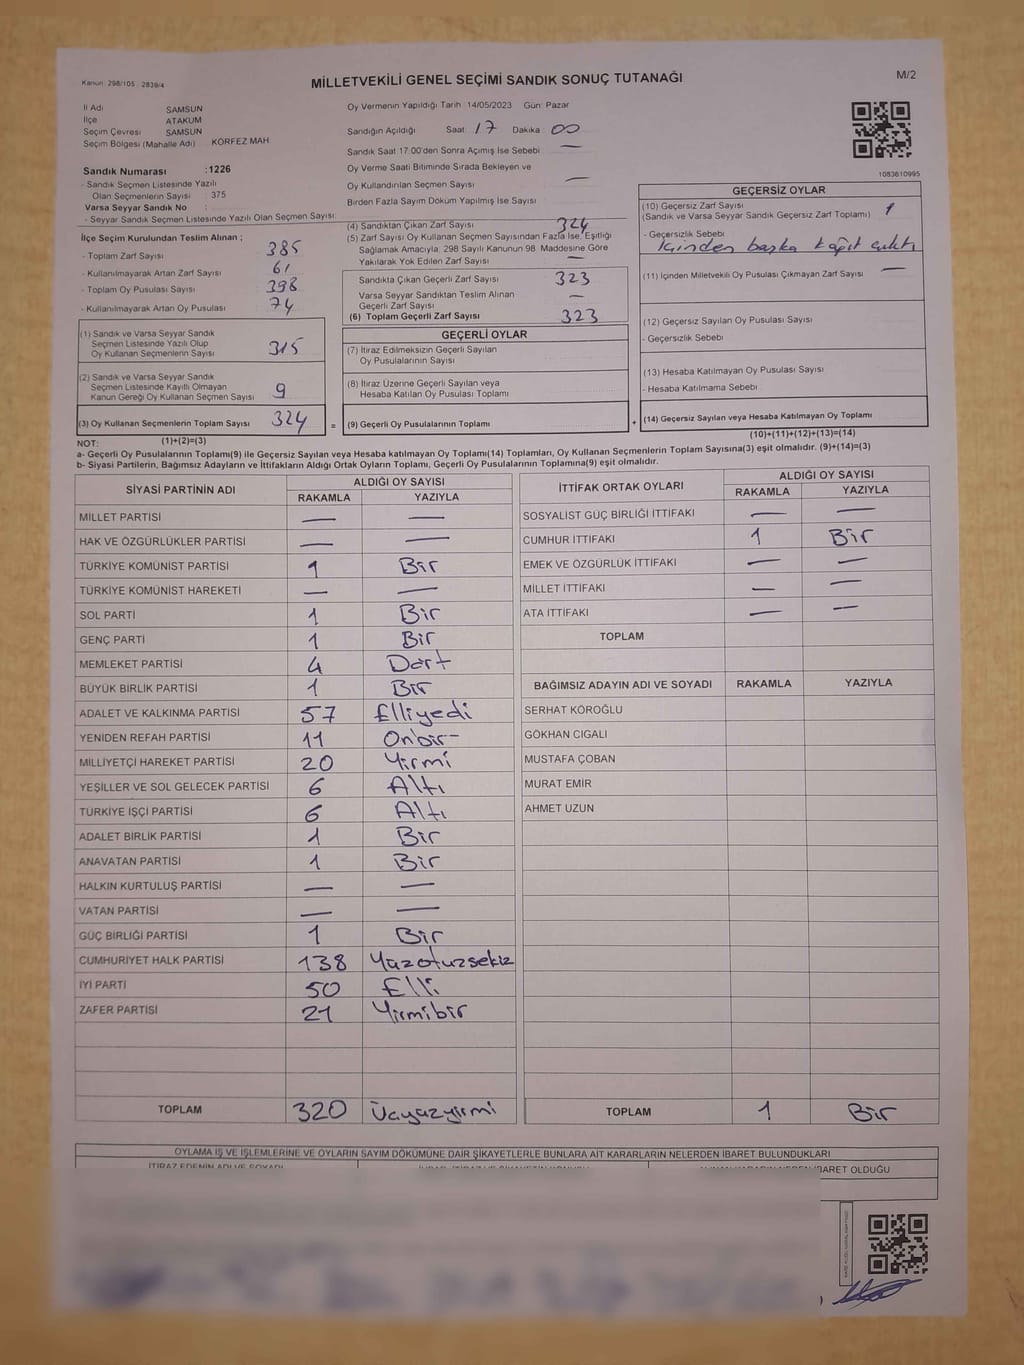 Kanun: 298/105 : 2839/4
MİLLETVEKİLİ GENEL SEÇİMİ SANDIK SONUÇ TUTANAĞI
M/2
İl Adı SAMSUN
İlçe ATAKUM
Seçim Çevresi SAMSUN
Seçim Bölgesi (Mahalle Adı) KÖRFEZ MAH
Sandık Numarası :1226
- Sandık Seçmen Listesinde Yazılı
Olan Seçmenlerin Sayısı : 375
Varsa Seyyar Sandık No :
- Seyyar Sandık Seçmen Listesinde Yazılı Olan Seçmen Sayısı:
Oy Vermenin Yapıldığı Tarih :14/05/2023 Gün: Pazar
Sandığın Açıldığı Saat: 17 Dakika: 00
Sandık Saat 17:00'den Sonra Açımış İse Sebebi : —
Oy Verme Saati Bitiminde Sırada Bekleyen ve
Oy Kullandırılan Seçmen Sayısı : —
Birden Fazla Sayım Döküm Yapılmış İse Sayısı :
1083610995
İlçe Seçim Kurulundan Teslim Alınan ;
- Toplam Zarf Sayısı : 385
- Kullanılmayarak Artan Zarf Sayısı : 61
- Toplam Oy Pusulası Sayısı : 398
- Kullanılmayarak Artan Oy Pusulası : 74
(1) Sandık ve Varsa Seyyar Sandık
Seçmen Listesinde Yazılı Olup
Oy Kullanan Seçmenlerin Sayısı : 315
(2) Sandık ve Varsa Seyyar Sandık
Seçmen Listesinde Kayıtlı Olmayan
Kanun Gereği Oy Kullanan Seçmen Sayısı : 9
(3) Oy Kullanan Seçmenlerin Toplam Sayısı : 324
(1)+(2)=(3)
(4) Sandıktan Çıkan Zarf Sayısı : 324
(5) Zarf Sayısı Oy Kullanan Seçmen Sayısından Fazla İse, Eşitliği
Sağlamak Amacıyla, 298 Sayılı Kanunun 98. Maddesine Göre
Yakılarak Yok Edilen Zarf Sayısı : —
Sandıkta Çıkan Geçerli Zarf Sayısı : 323
Varsa Seyyar Sandıktan Teslim Alınan
Geçerli Zarf Sayısı : —
(6) Toplam Geçerli Zarf Sayısı : 323
GEÇERLİ OYLAR
(7) İtiraz Edilmeksizin Geçerli Sayılan
Oy Pusulalarının Sayısı :
(8) İtiraz Üzerine Geçerli Sayılan veya
Hesaba Katılan Oy Pusulası Toplamı :
= (9) Geçerli Oy Pusulalarının Toplamı :
GEÇERSİZ OYLAR
(10) Geçersiz Zarf Sayısı
(Sandık ve Varsa Seyyar Sandık Geçersiz Zarf Toplamı) : 1
- Geçersizlik Sebebi :
içinden başka kağıt çıktı
(11) İçinden Milletvekili Oy Pusulası Çıkmayan Zarf Sayısı : —
(12) Geçersiz Sayılan Oy Pusulası Sayısı :
- Geçersizlik Sebebi :
(13) Hesaba Katılmayan Oy Pusulası Sayısı :
- Hesaba Katılmama Sebebi :
+ (14) Geçersiz Sayılan veya Hesaba Katılmayan Oy Toplamı :
(10)+(11)+(12)+(13)=(14)
NOT:
a- Geçerli Oy Pusulalarının Toplamı(9) ile Geçersiz Sayılan veya Hesaba katılmayan Oy Toplamı(14) Toplamları, Oy Kullanan Seçmenlerin Toplam Sayısına(3) eşit olmalıdır. (9)+(14)=(3)
b- Siyasi Partilerin, Bağımsız Adayların ve İttifakların Aldığı Ortak Oyların Toplamı, Geçerli Oy Pusulalarının Toplamına(9) eşit olmalıdır.
SİYASİ PARTİNİN ADI ALDIĞI OY SAYISI
RAKAMLA YAZIYLA
MİLLET PARTİSİ — —
HAK VE ÖZGÜRLÜKLER PARTİSİ — —
TÜRKİYE KOMÜNİST PARTİSİ 1 Bir
TÜRKİYE KOMÜNİST HAREKETİ — —
SOL PARTİ 1 Bir
GENÇ PARTİ 1 Bir
MEMLEKET PARTİSİ 4 Dört
BÜYÜK BİRLİK PARTİSİ 1 Bir
ADALET VE KALKINMA PARTİSİ 57 Elliyedi
YENİDEN REFAH PARTİSİ 11 Onbir
MİLLİYETÇİ HAREKET PARTİSİ 20 Yirmi
YEŞİLLER VE SOL GELECEK PARTİSİ 6 Altı
TÜRKİYE İŞÇİ PARTİSİ 6 Altı
ADALET BİRLİK PARTİSİ 1 Bir
ANAVATAN PARTİSİ 1 Bir
HALKIN KURTULUŞ PARTİSİ — —
VATAN PARTİSİ — —
GÜÇ BİRLİĞİ PARTİSİ 1 Bir
CUMHURİYET HALK PARTİSİ 138 Yüzotuzsekiz
İYİ PARTİ 50 Elli
ZAFER PARTİSİ 21 Yirmibir
TOPLAM 320 Üçyüzyirmi
İTTİFAK ORTAK OYLARI ALDIĞI OY SAYISI
RAKAMLA YAZIYLA
SOSYALİST GÜÇ BİRLİĞİ İTTİFAKI — —
CUMHUR İTTİFAKI 1 Bir
EMEK VE ÖZGÜRLÜK İTTİFAKI — —
MİLLET İTTİFAKI — —
ATA İTTİFAKI — —
TOPLAM
BAĞIMSIZ ADAYIN ADI VE SOYADI RAKAMLA YAZIYLA
SERHAT KÖROĞLU
GÖKHAN CIGALI
MUSTAFA ÇOBAN
MURAT EMİR
AHMET UZUN
TOPLAM 1 Bir
OYLAMA İŞ VE İŞLEMLERİNE VE OYLARIN SAYIM DÖKÜMÜNE DAİR ŞİKAYETLERLE BUNLARA AİT KARARLARIN NELERDEN İBARET BULUNDUKLARI
İTİRAZ EDENİN ADI VE SOYADI
İBARET OLDUĞU